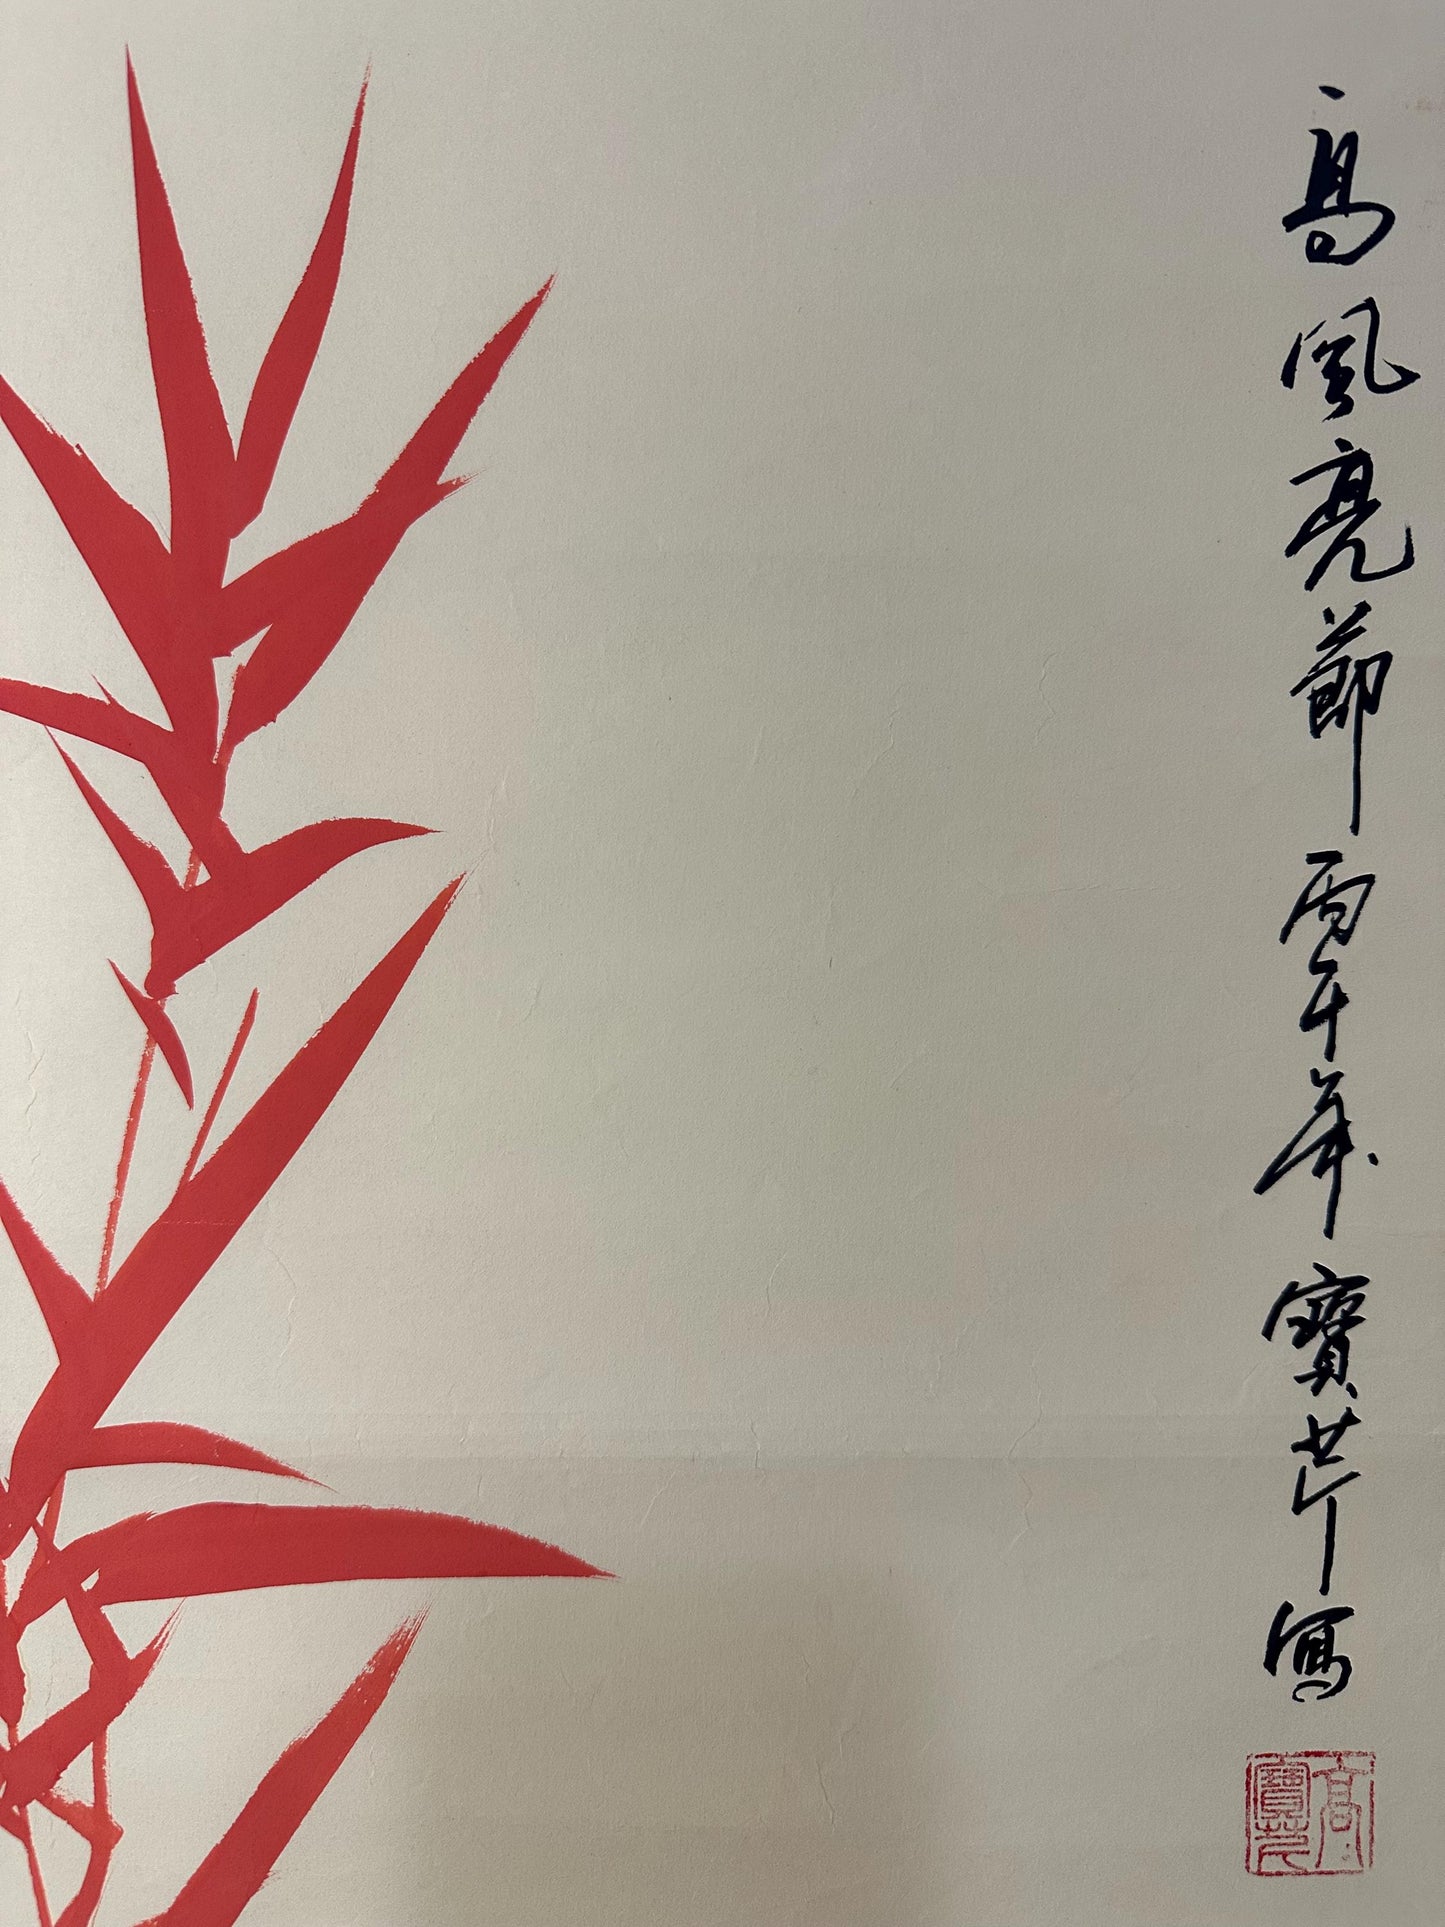 高風亮節丙午年寶芹寫
高寶芹